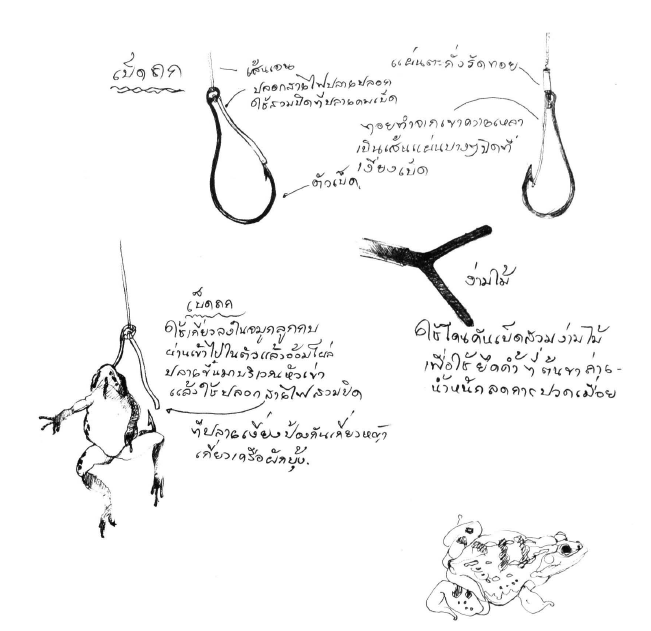 เบ็ดถก
เส้นเอน
ปลอกสายไฟปลายปลอก
ใช้สวมปิดที่ปลายคมเบ็ด
ตัวเบ็ด
แผ่นตะกั่วรัดทอย
ทอยทำจากเขาควายเหลา
เป็นเส้นแผ่นบางๆปิดที่
เงี่ยงเบ็ด
ง่ามไม้
ใช้โคนคันเบ็ดสวมง่ามไม้
เพื่อใช้ยึดค้ำๆ ต้นขา ถ่าย-
น้ำหนัก ลดการปวดเมื่อย
เบ็ดถก
ใช้เกี่ยวลงในจมูกลูกกบ
ผ่านเข้าไปในตัวแล้วอ้อมโผล่
ปลายขึ้นมาบริเวณหัวเข่า
แล้วใช้ปลอกสายไฟสวมปิด
ที่ปลายเงี่ยงป้องกันเกี่ยวหญ้า
เกี่ยวเครือผักบุ้ง.